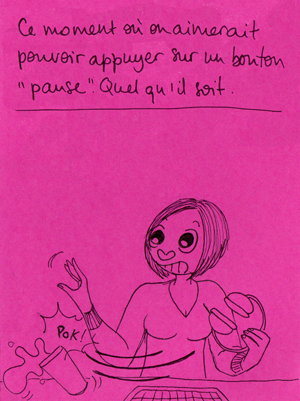 Ce moment où on aimerait
pouvoir appuyer sur un bouton
"pause". Quel qu'il soit.
POK!